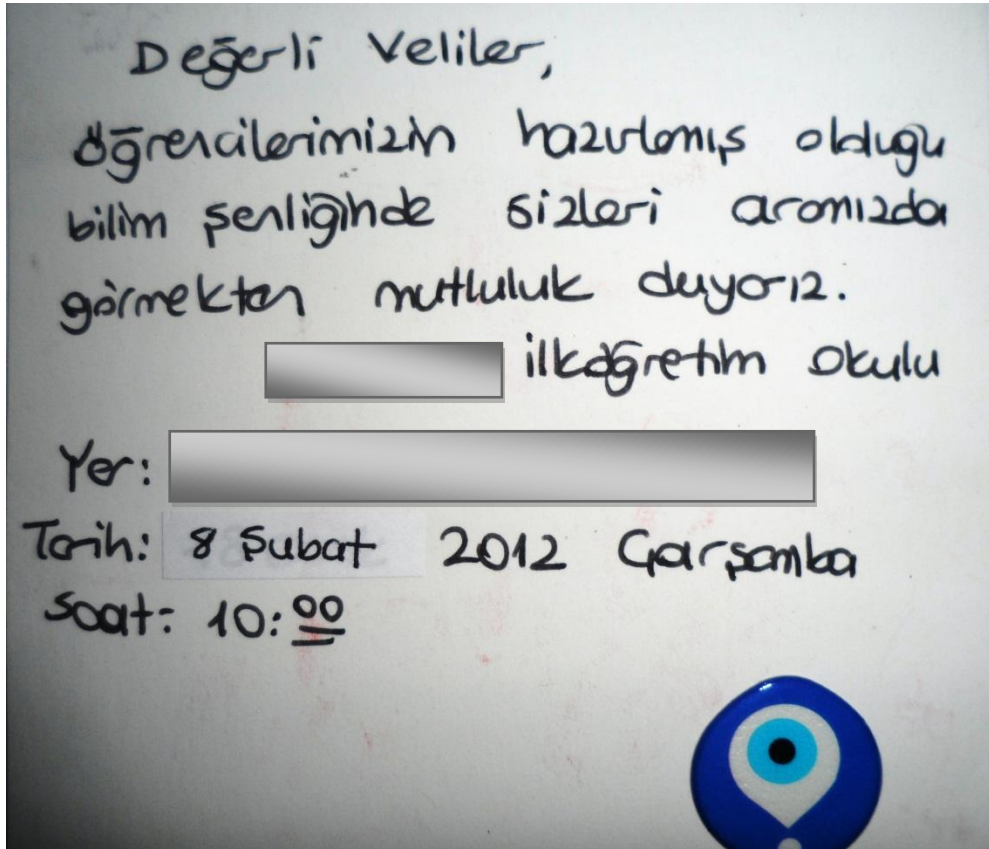 Değerli Veliler,
öğrencilerimizin hazırlamış olduğu
bilim şenliğinde sizleri aramızda
görmekten mutluluk duyarız.
ilköğretim Okulu
Yer:
Tarih: 8 Şubat 2012 Çarşamba
Saat: 10:00